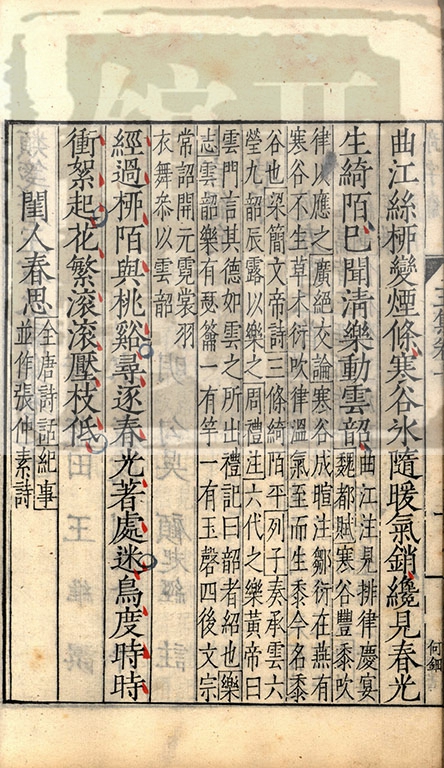 曲江絲桞變煙條寒谷氷隨暖氣銷纔見春光
生綺陌已聞清樂動雲韶
曲江注見排律慶宴
魏都賦寒谷豐黍吹
律以應之廣絕交論寒谷成暄注鄒衍在燕有
寒谷不生草木衍吹律溫氣至而生黍今名黍
谷也梁簡文帝詩三條綺陌平列子奏承雲六
瑩九韶辰露以樂之周禮注六代之樂黃帝曰
雲門言其德如雲之所出禮記曰韶者紹也樂
志雲韶樂有瑟簫一有竽一有玉磬四後文宗
常詔開元霓裳羽
衣舞叅以雲韶
經過桞陌與桃谿尋逐春光著處迷鳥度時時
衝絮起花繁滚滚壓枝低
閨人春思
全唐詩話紀事
並作張仲素詩
何鈿